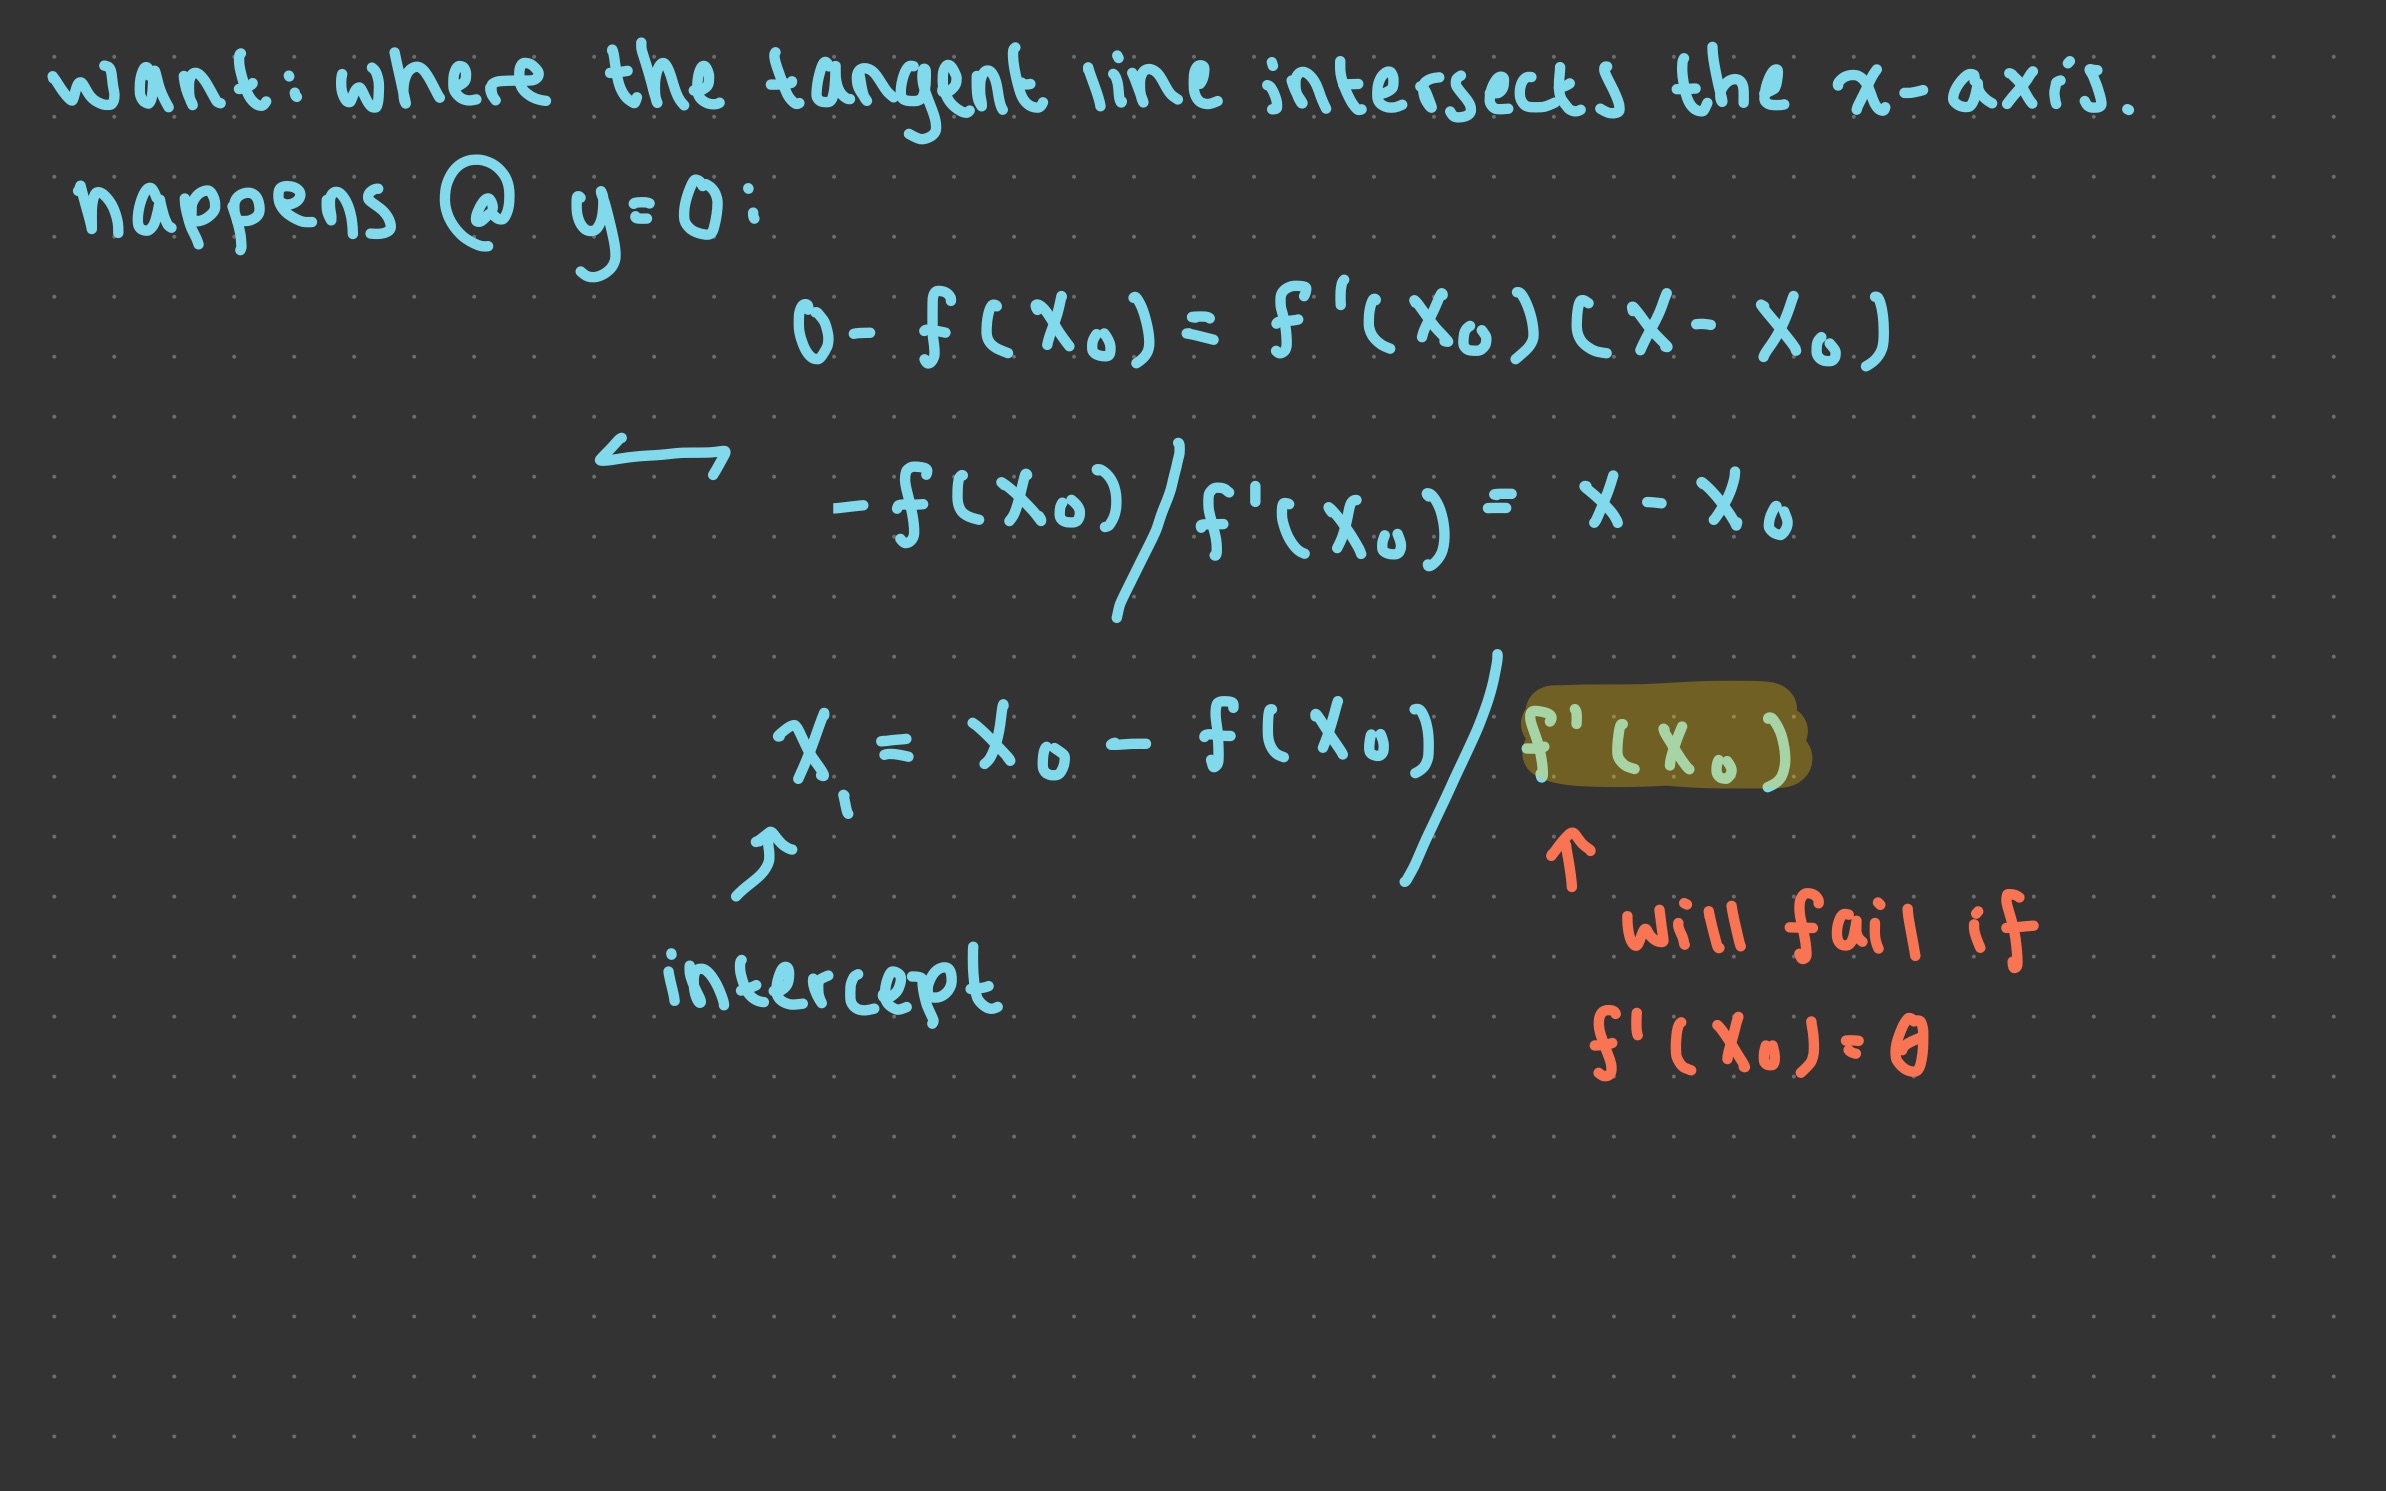 want: where the tangent line intersects the x-axis.
happens @ y=0:
0 - f(x₀) = f'(x₀)(x - x₀)
⟷ -f(x₀)/f'(x₀) = x - x₀
x₁ = x₀ - f(x₀)/f'(x₀)
↗ ↑
will fail if
intercept
f'(x₀)=0